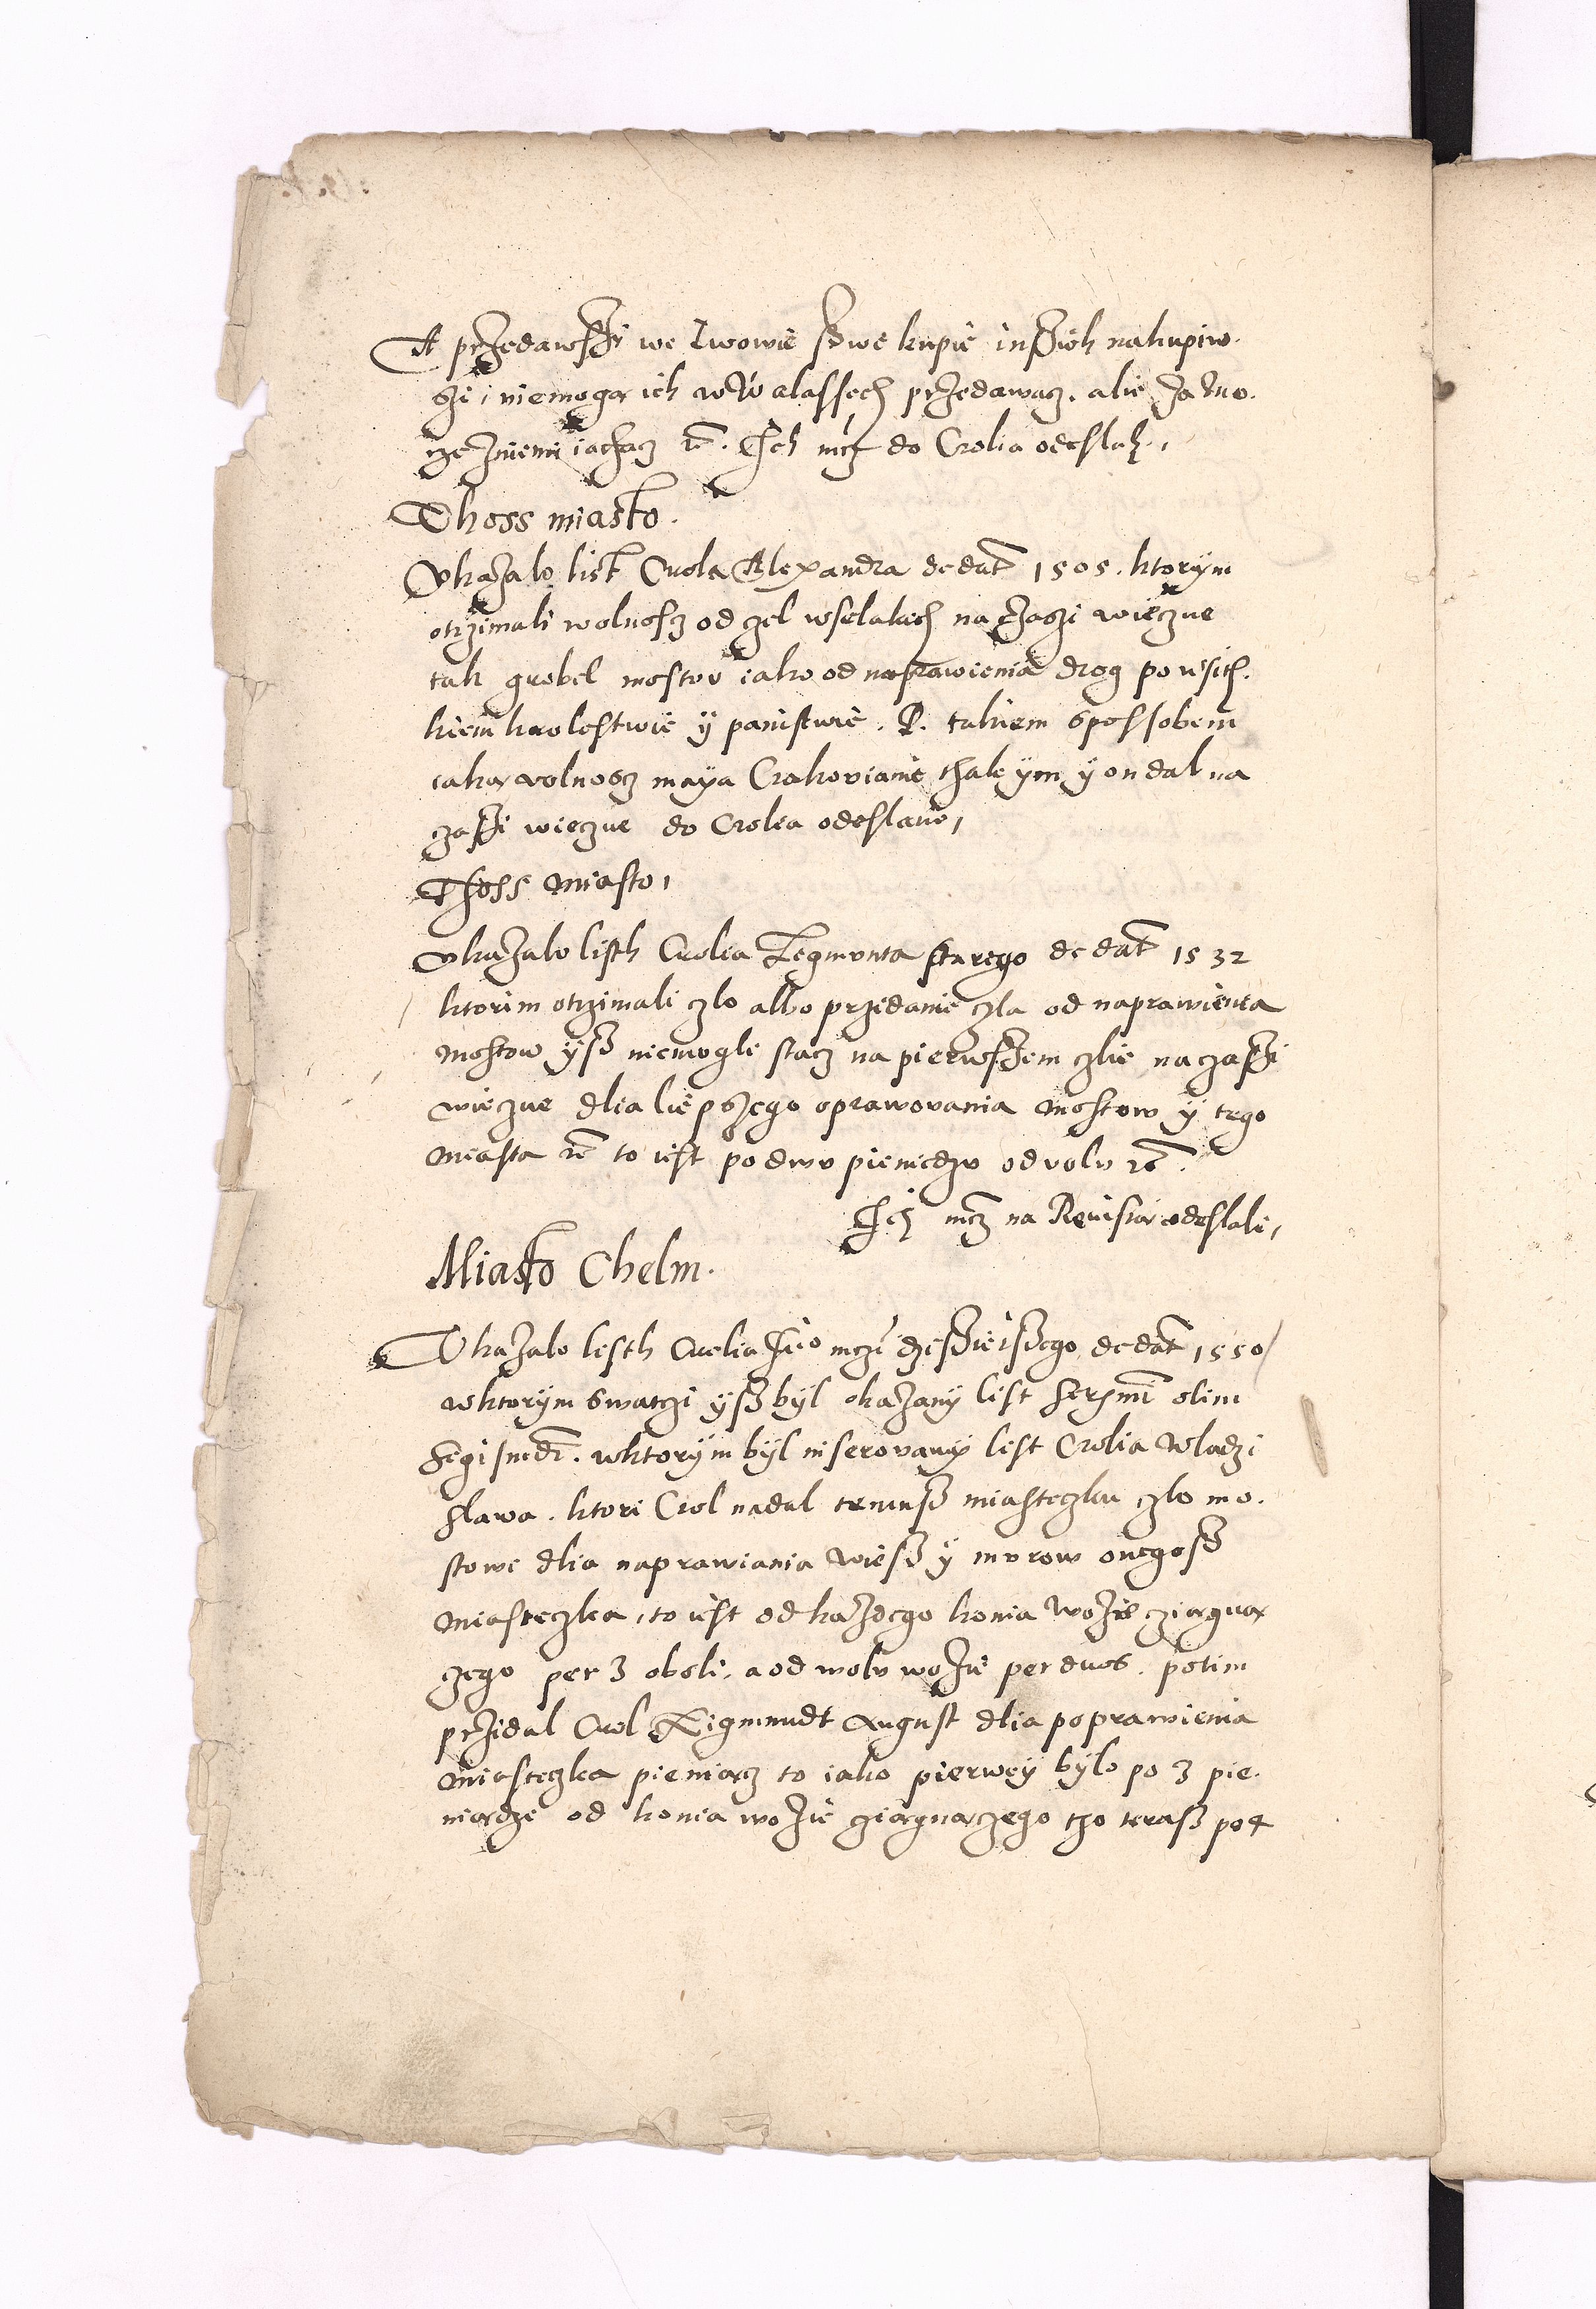 A przedawszi we Lwowie swe kupie inszich nakupiw-
szi, niemogą ich w Walassech przedawacz. alie za mo-
rze zniemi iachacz etc. Ich mcz do Crolia odeslali,
Thoss miasto.
Vkazalo list Crola Alexandra de dat 1505. ktorym
otrzimali wolnoscz od czel wselakich na czaszi wieczne
tak grobel mostow iako od naprawienia drog po wsitk-
kiem krolestwie ÿ panistwie. R. takiem sposobem
iaką wolnoscz maÿa Crakowianie thak ÿm ÿ on dal na
czaszi wieczne do Crolia odeslano,
Thoss miasto,
Vkazalo listh Crolia Zegmonta starego de dat 1532
ktorim otrzimali czlo albo przidanie czla od naprawienia
mostow ÿsz niemogli stacz na pierwszem czlie na czaszi
wieczne dlia liepszego oprawowania mostow ÿ tego
miasta etc to iest po dwu pieniedzu od wolu etc.
Ich mcz na Revisią odeslali,
Miasto Chelm.
Vkazalo listh Crolia Je° mczi dziszieiszego de dat 1550
wktorym swatczi ÿsz bÿl okazanÿ list sermi olim
Sigismdi. wktorÿm bÿl inserowanÿ list Crolia Wladzi
slawa. ktori Crol nadal temusz miasteczku czlo mo-
stowe dlia naprawiania wiesz ÿ murow onegosz
miasteczka, to iest od kazdego konia wozie cziągną
czego per 3 oboli, a od wolu wozie per duos. potim
przidal Crol Zigmundt August dlia poprawienia
miasteczka pieniącz to iako pierweÿ bÿlo po 3 pie-
niądze od konia wozie cziągnączego tzo terasz po 4